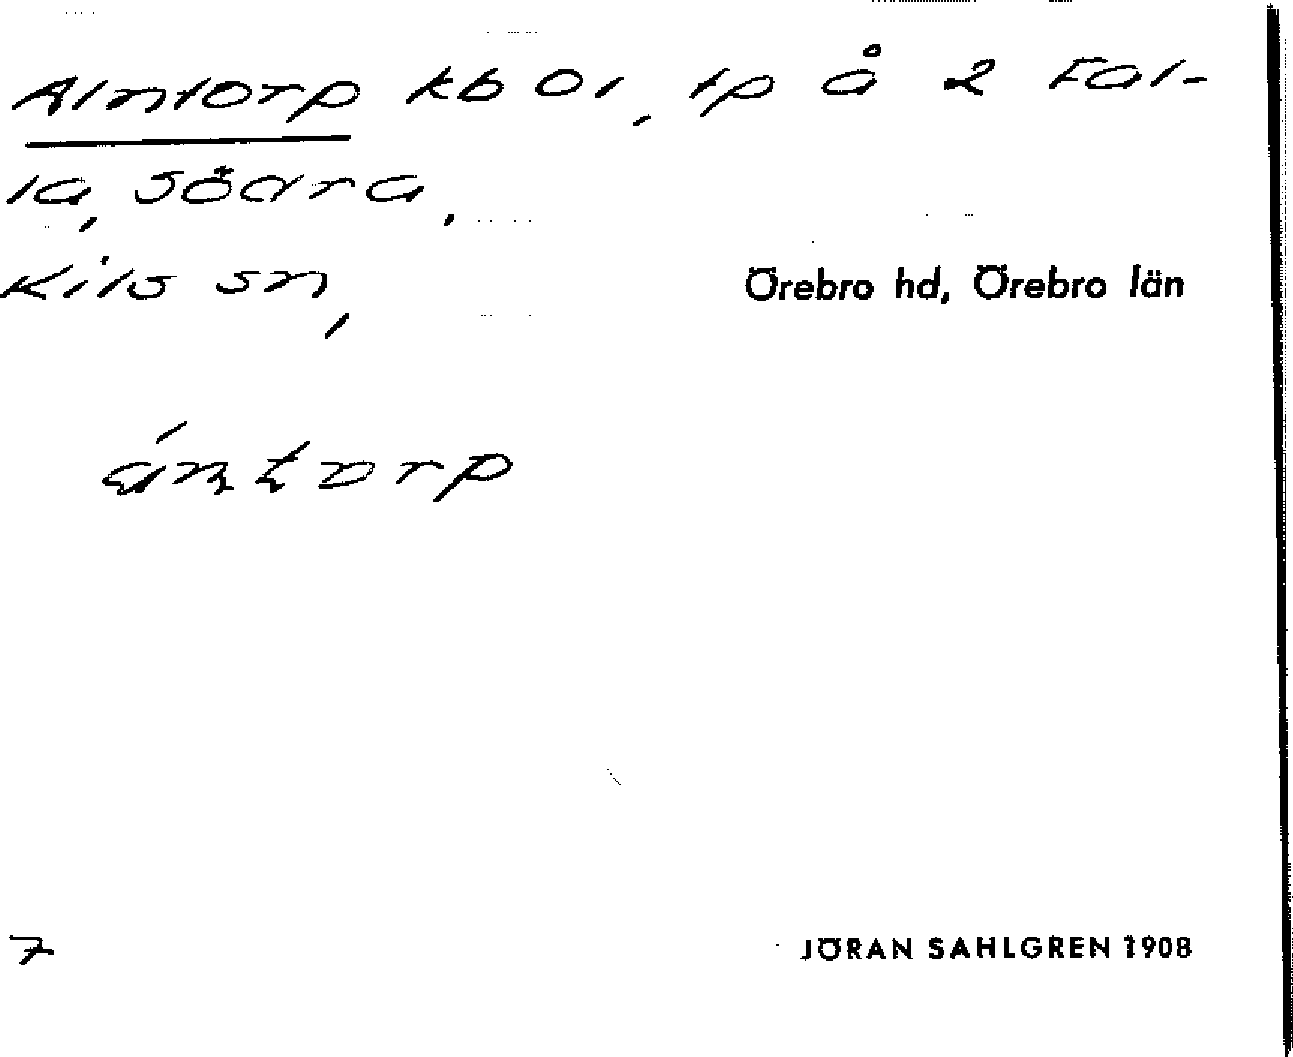 Almtorp kb 01, tp å 2 Fal-
la, Södra,
Kils sn,
Örebro hd, Örebro län
ántorp
7
JÖRAN SAHLGREN 1908